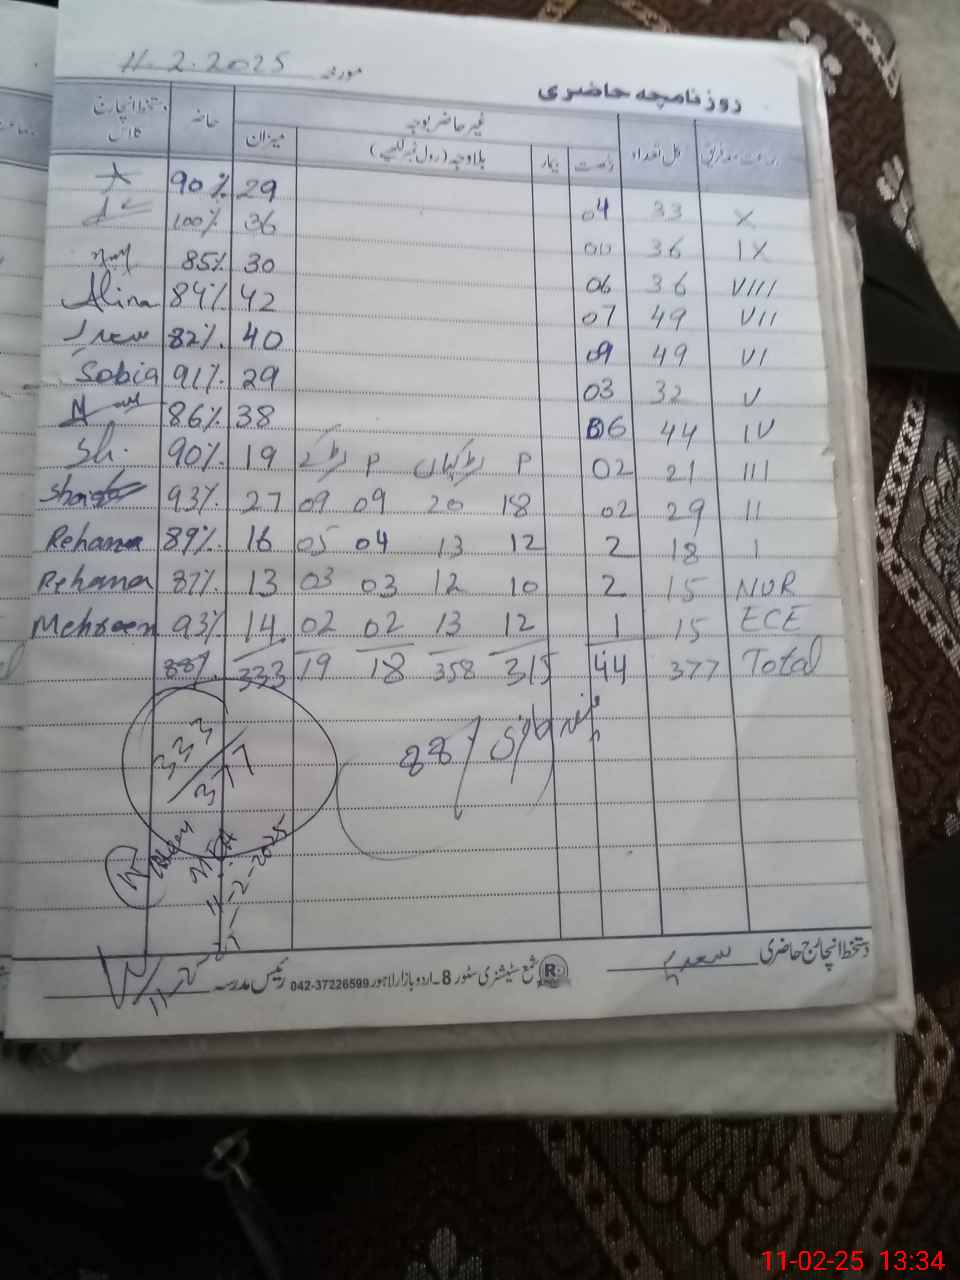 مورخہ 11.2.2025
روزنامچہ حاضری
جماعت معہ فریق کل تعداد غیر حاضر بوجہ میزان حاضر دستخط انچارج کلاس
رخصت بیمار بلاوجہ (رول نمبر لکھیے)
X 33 04 29 90%
IX 36 00 36 100%
VIII 36 06 30 85%
VII 49 07 42 84% Alina
VI 49 09 40 82% سعدیہ
V 32 03 29 91% Sobia
IV 44 06 38 86%
III 21 02 P لڑکیاں P لڑکے 19 90% Sh.
II 29 02 18 20 09 09 27 93%
I 18 2 12 13 04 05 16 89% Rehana
NUR 15 2 10 12 03 03 13 87% Rehana
ECE 15 1 12 13 02 02 14 93% Mehreen
Total 377 44 315 358 18 19 333 88%
333/377
88%
MEA
11-2-2025
دستخط انچارج حاضری سعدیہ
R شمع سٹیشنری سٹور 8۔اردو بازار لاہور 042-37226599
رئیس مدرسہ
11-02-25 13:34